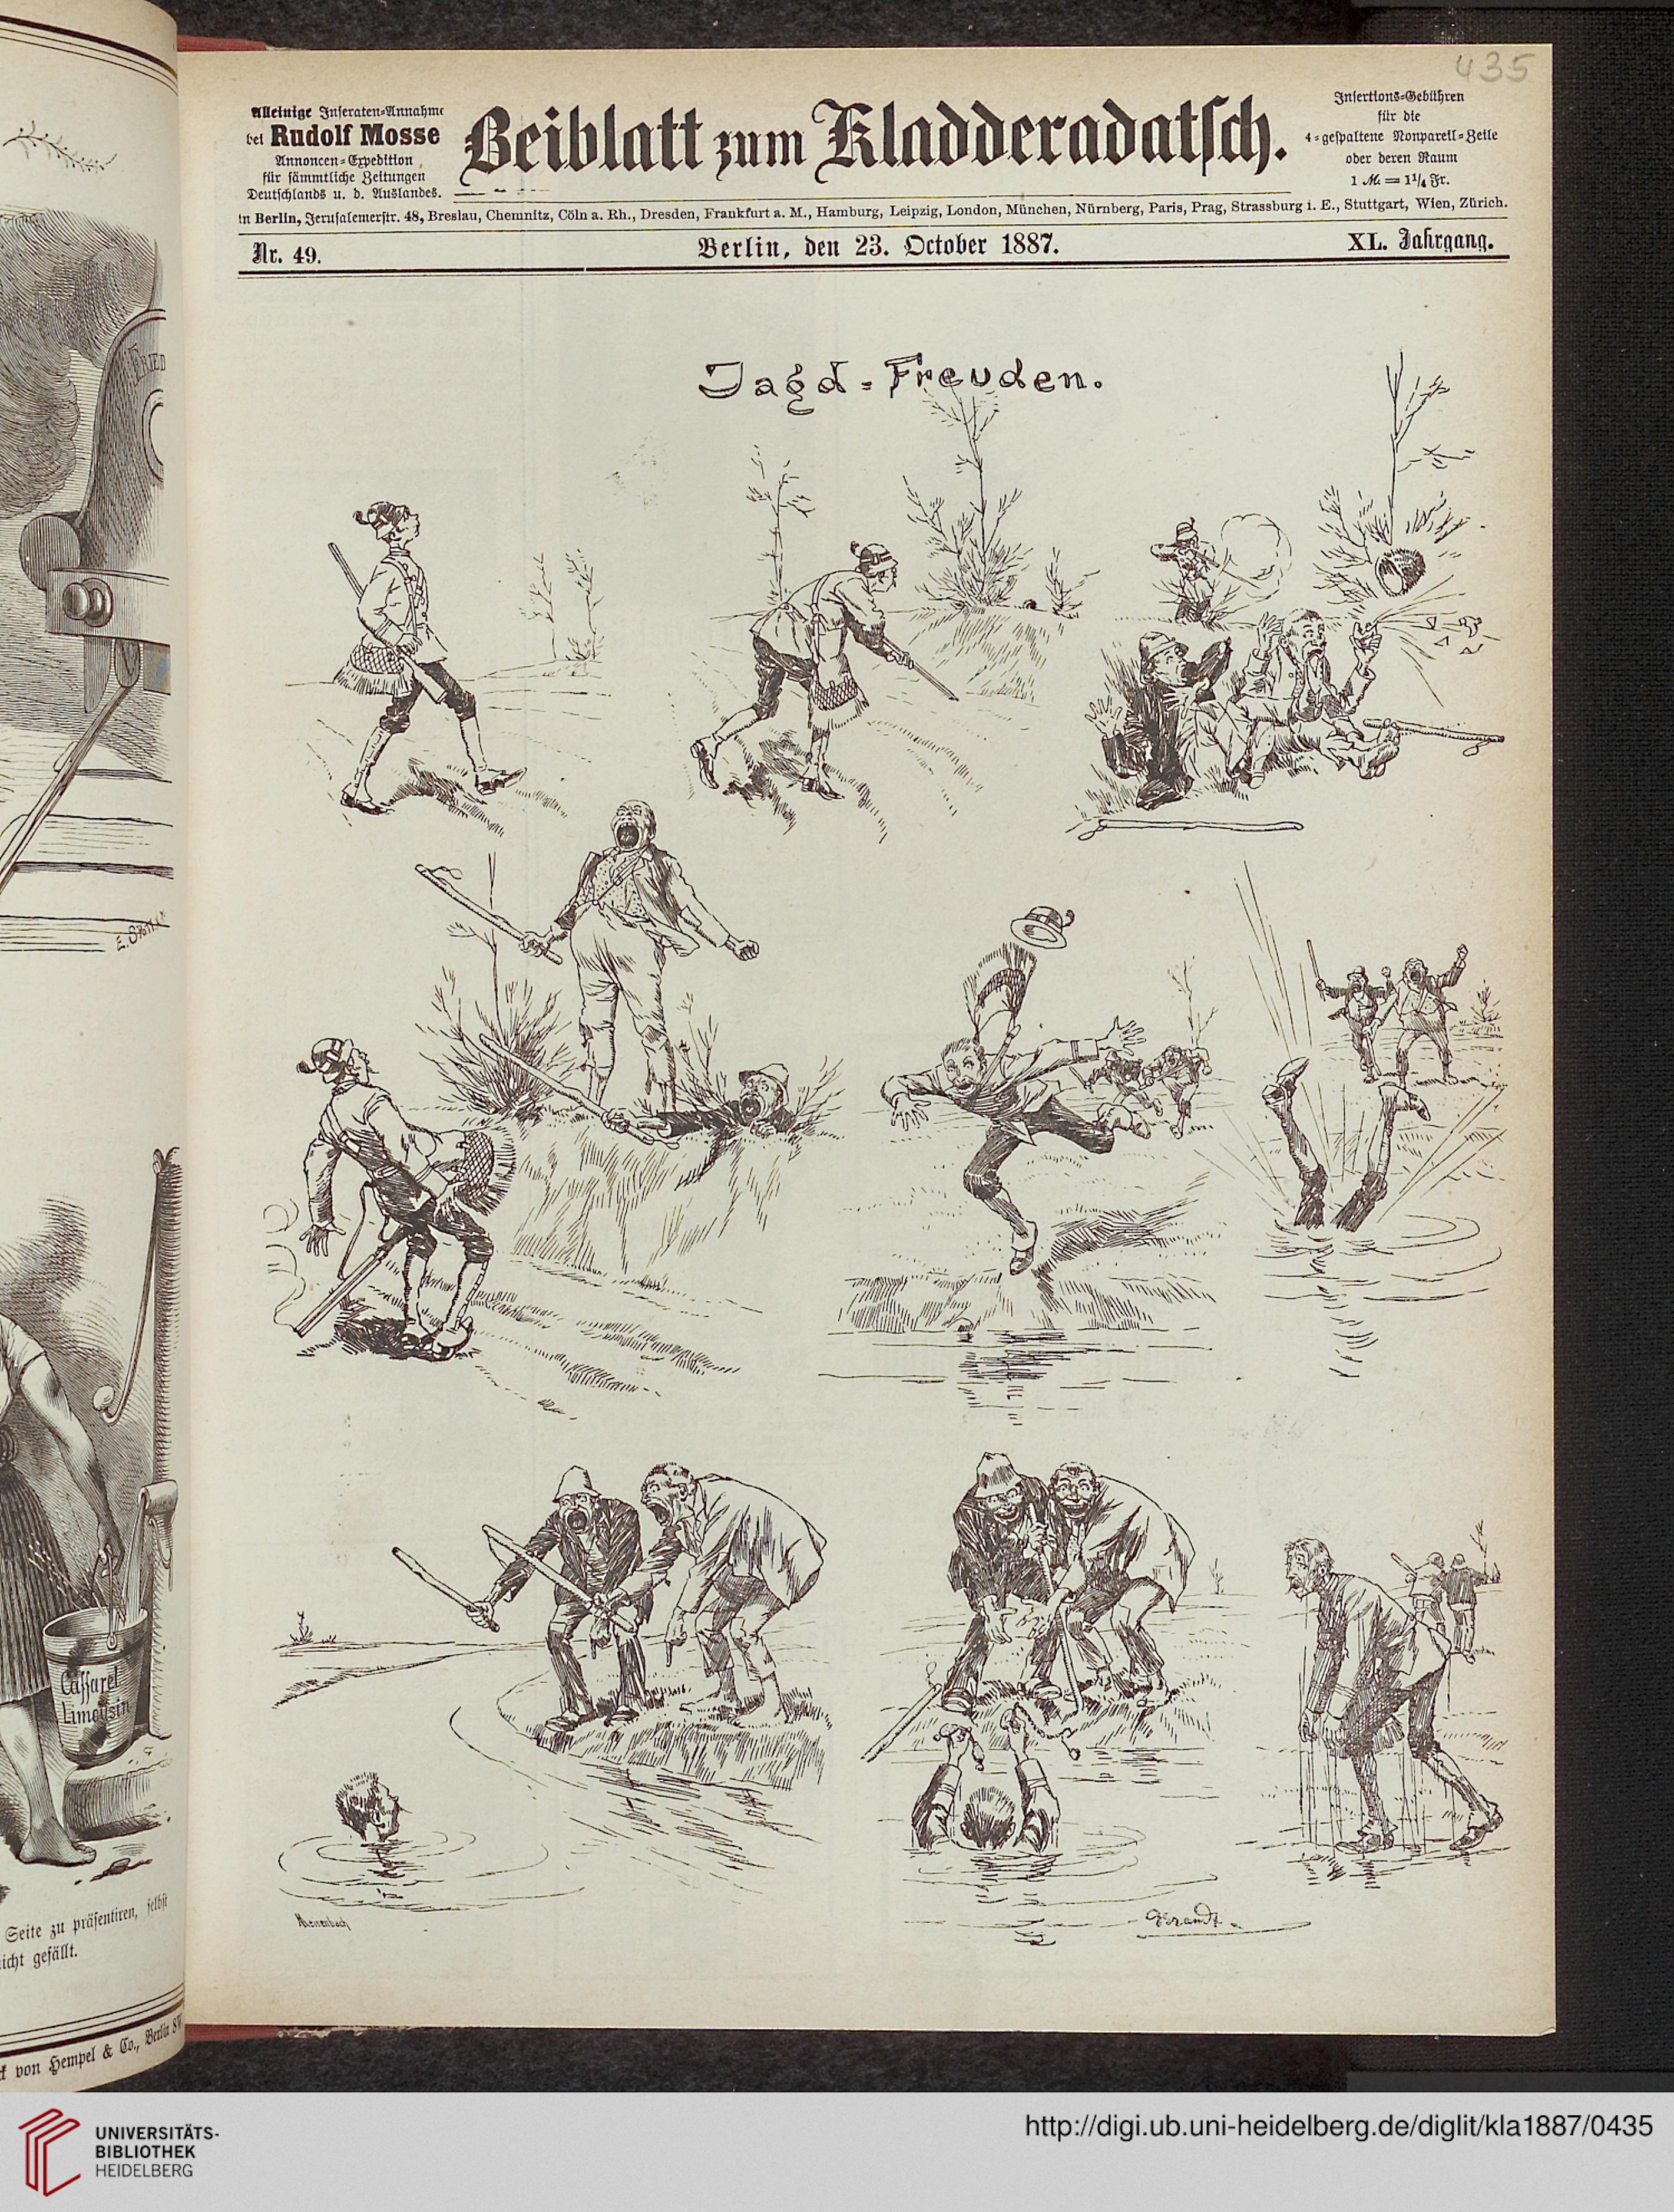 435
Alleinige Inseraten-Annahme
bei Rudolf Mosse
Annoncen-Expedition
für sämmtliche Zeitungen
Deutschlands u. d. Auslandes.
Beiblatt zum Kladderadatsch.
Insertions-Gebühren
für die
4-gespaltene Nonpareil-Zeile
oder deren Raum
1 M. = 1¼ Fr.
in Berlin, Jerusalemerstr. 48, Breslau, Chemnitz, Cöln a. Rh., Dresden, Frankfurt a. M., Hamburg, Leipzig, London, München, Nürnberg, Paris, Prag, Strassburg i. E., Stuttgart, Wien, Zürich.
Nr. 49.
Berlin, den 23. October 1887.
XL. Jahrgang.
Jagd-Freuden.
FRIED
Caffarel
Limousin
Seite zu präsentiren, selbst
nicht gefällt.
von Hempel & Co., Berlin SW
Brandt
UNIVERSITÄTS-
BIBLIOTHEK
HEIDELBERG
http://digi.ub.uni-heidelberg.de/diglit/kla1887/0435